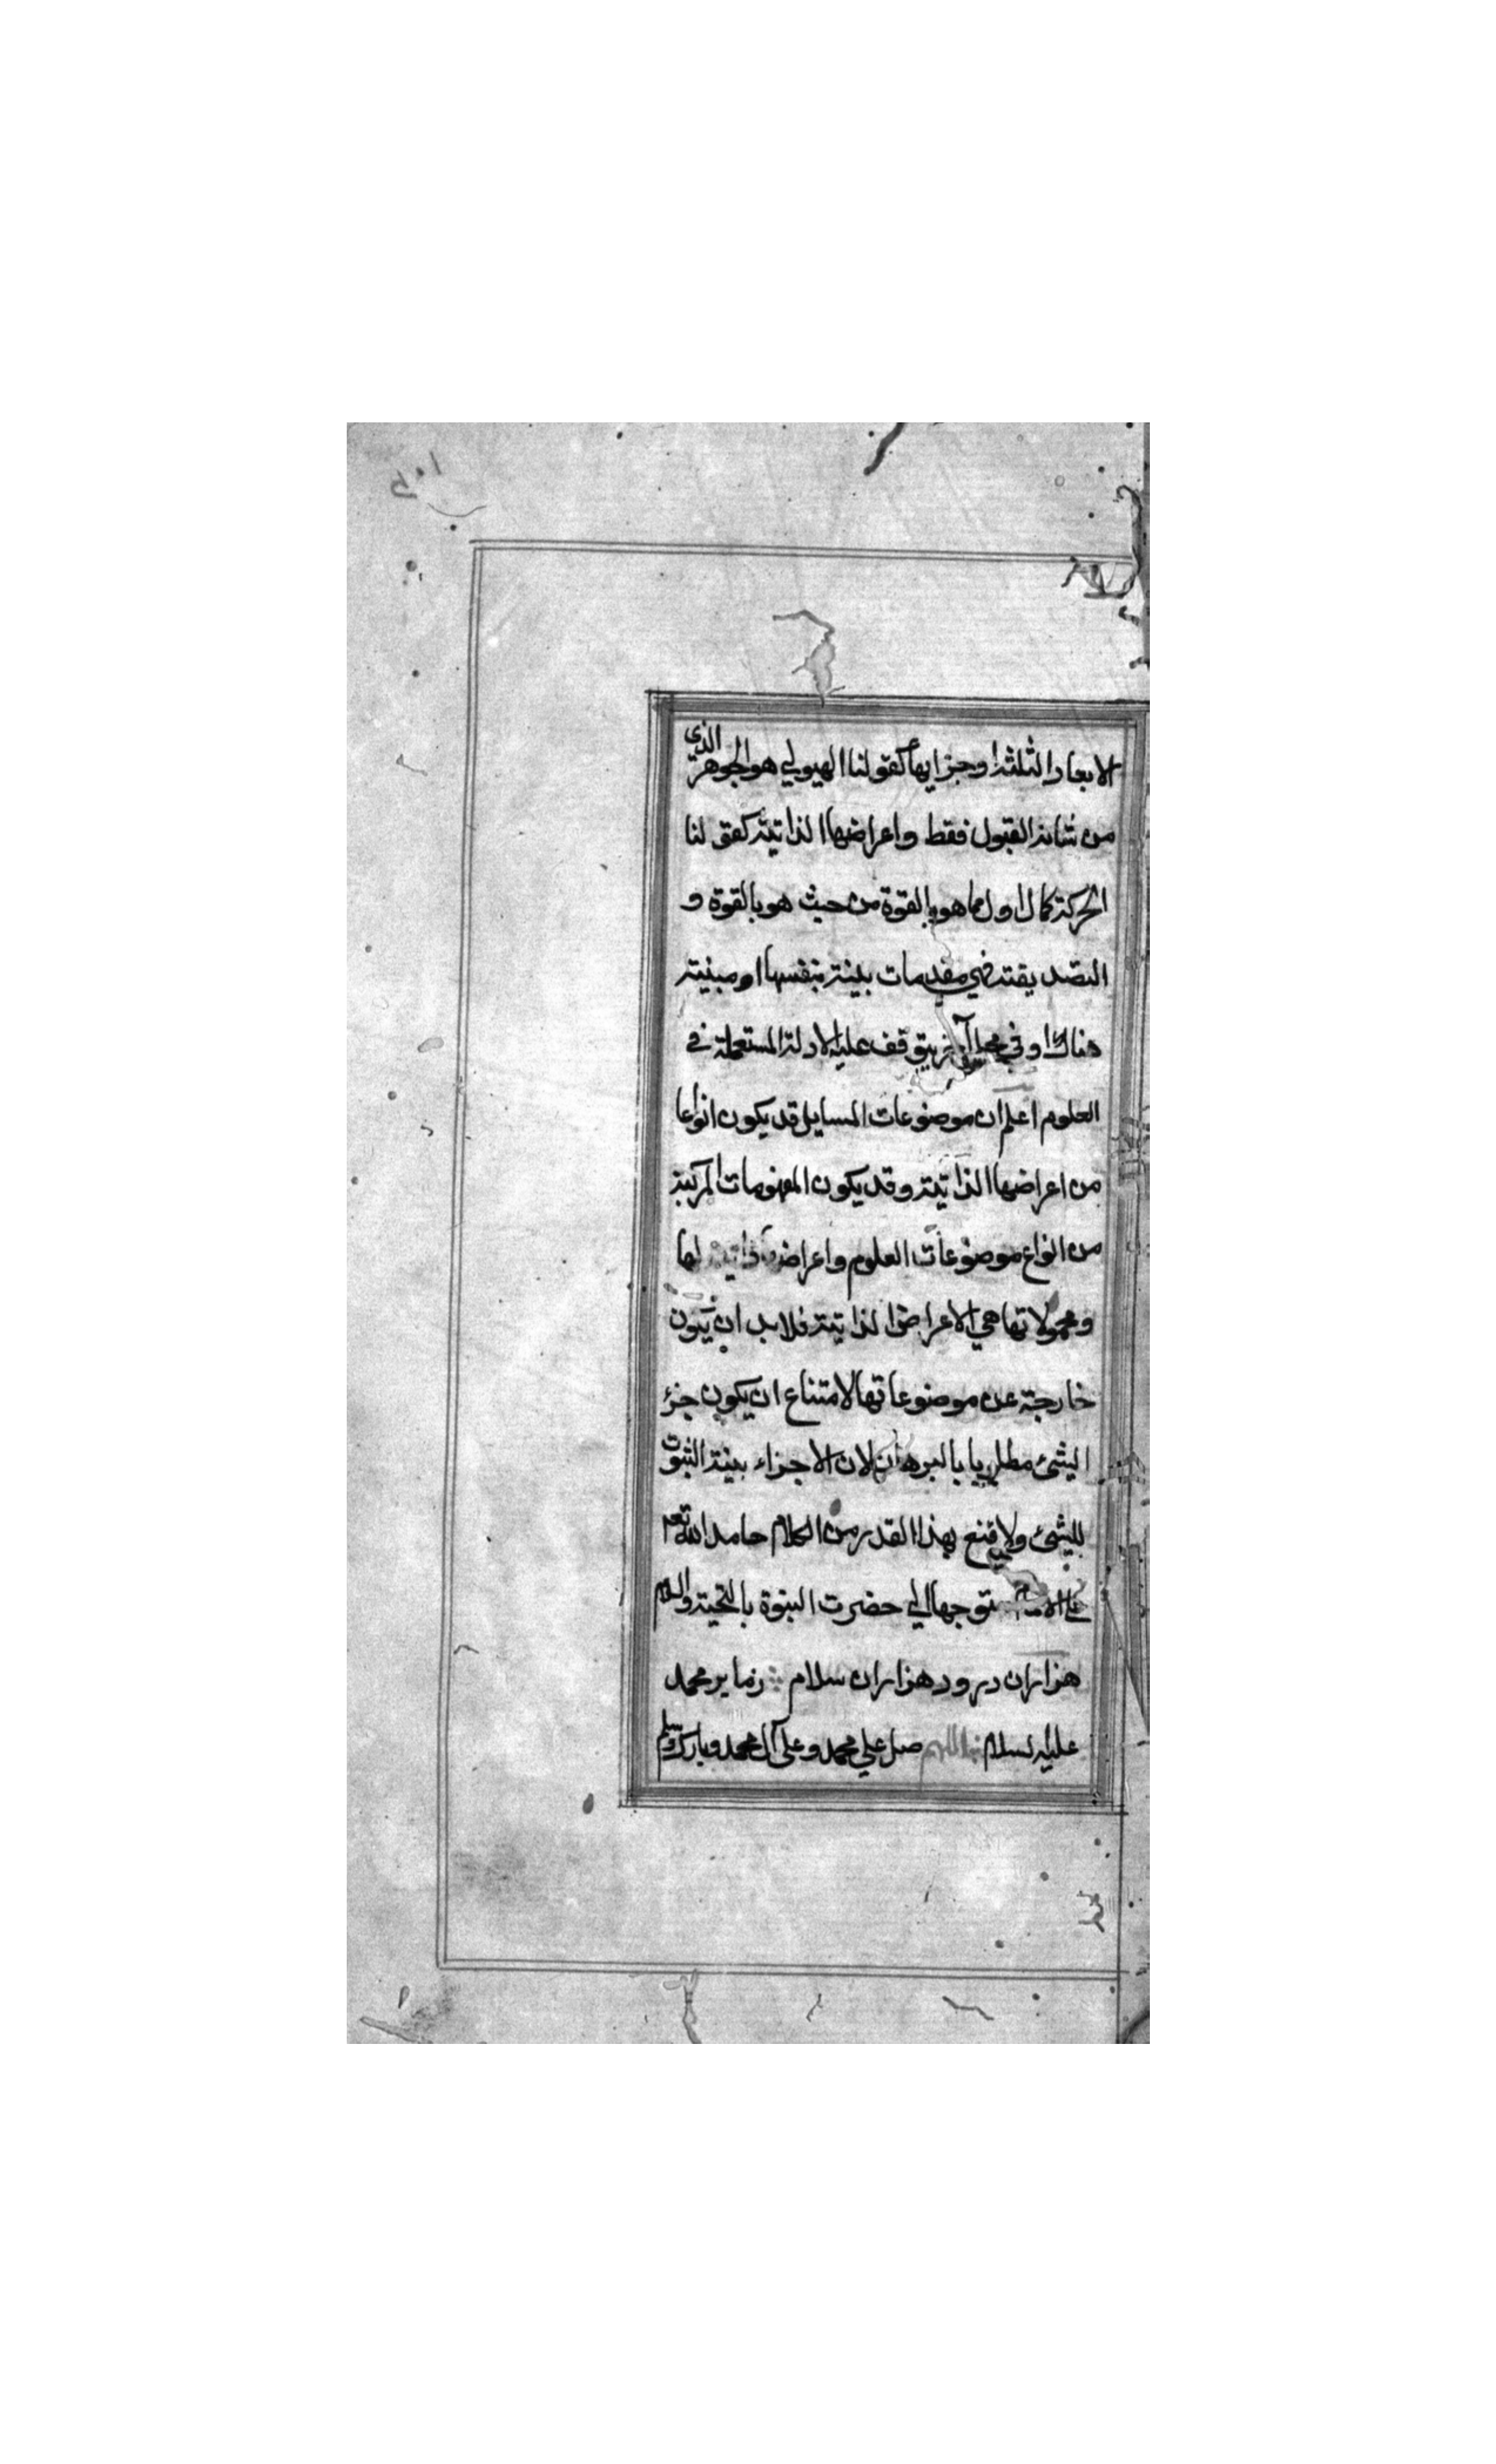 الابعاد الثلثة او جزايها كقولنا الهيولي هو الجوهر الذي
من شانه القبول فقط واعراضها الذاتية كقولنا
الحركة كمال اول مما هو بالقوة من حيث هو بالقوة و
التصديقية في مقدمات بينة بنفسها او مبنية
هناك او في محل آخر يتوقف عليه الادلة المستعملة في
العلوم اعلم ان موضوعات المسايل قد يكون انواعا
من اعراضها الذاتية وقد يكون المفهومات المركبة
من انواع موضوعات العلوم واعراض ذاتية لها
ومحمولاتها هي الاعراض الذاتية فلابد ان يكون
خارجة عن موضوعاتها لامتناع ان يكون جزء
الشئ مطلوبا بالبرهان لان الاجزاء بينة الثبوت
للشئ ولنقنع بهذا القدر من الكلام حامد الله تعم
متوجها الي حضرت النبوة بالتحية والسلام
هزاران درود هزاران سلام زما بر محمد
عليه لسلام اللهم صل علي محمد وعلى آل محمد وبارك وسلم